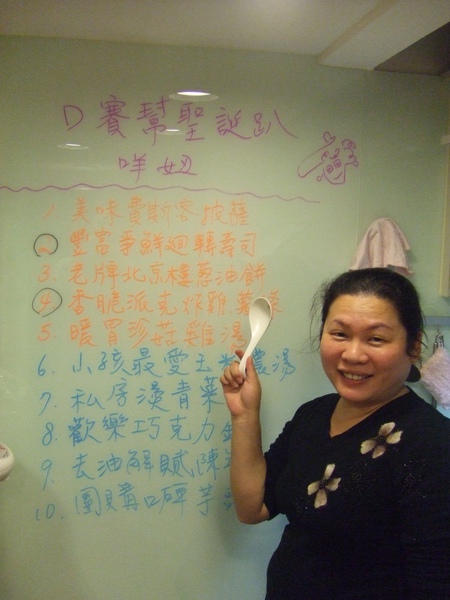 D賽幫聖誕趴
咩妞
1. 美味費斯客披薩
2. 豐富爭鮮迴轉壽司
3. 老牌北京樓蔥油餅
4. 香脆派克炸雞
5. 暖胃珍菇雞湯
6. 小孩最愛玉米濃湯
7. 私房燙青菜
8. 歡樂巧克力
9. 去油解膩陳
10. 團購口碑芋